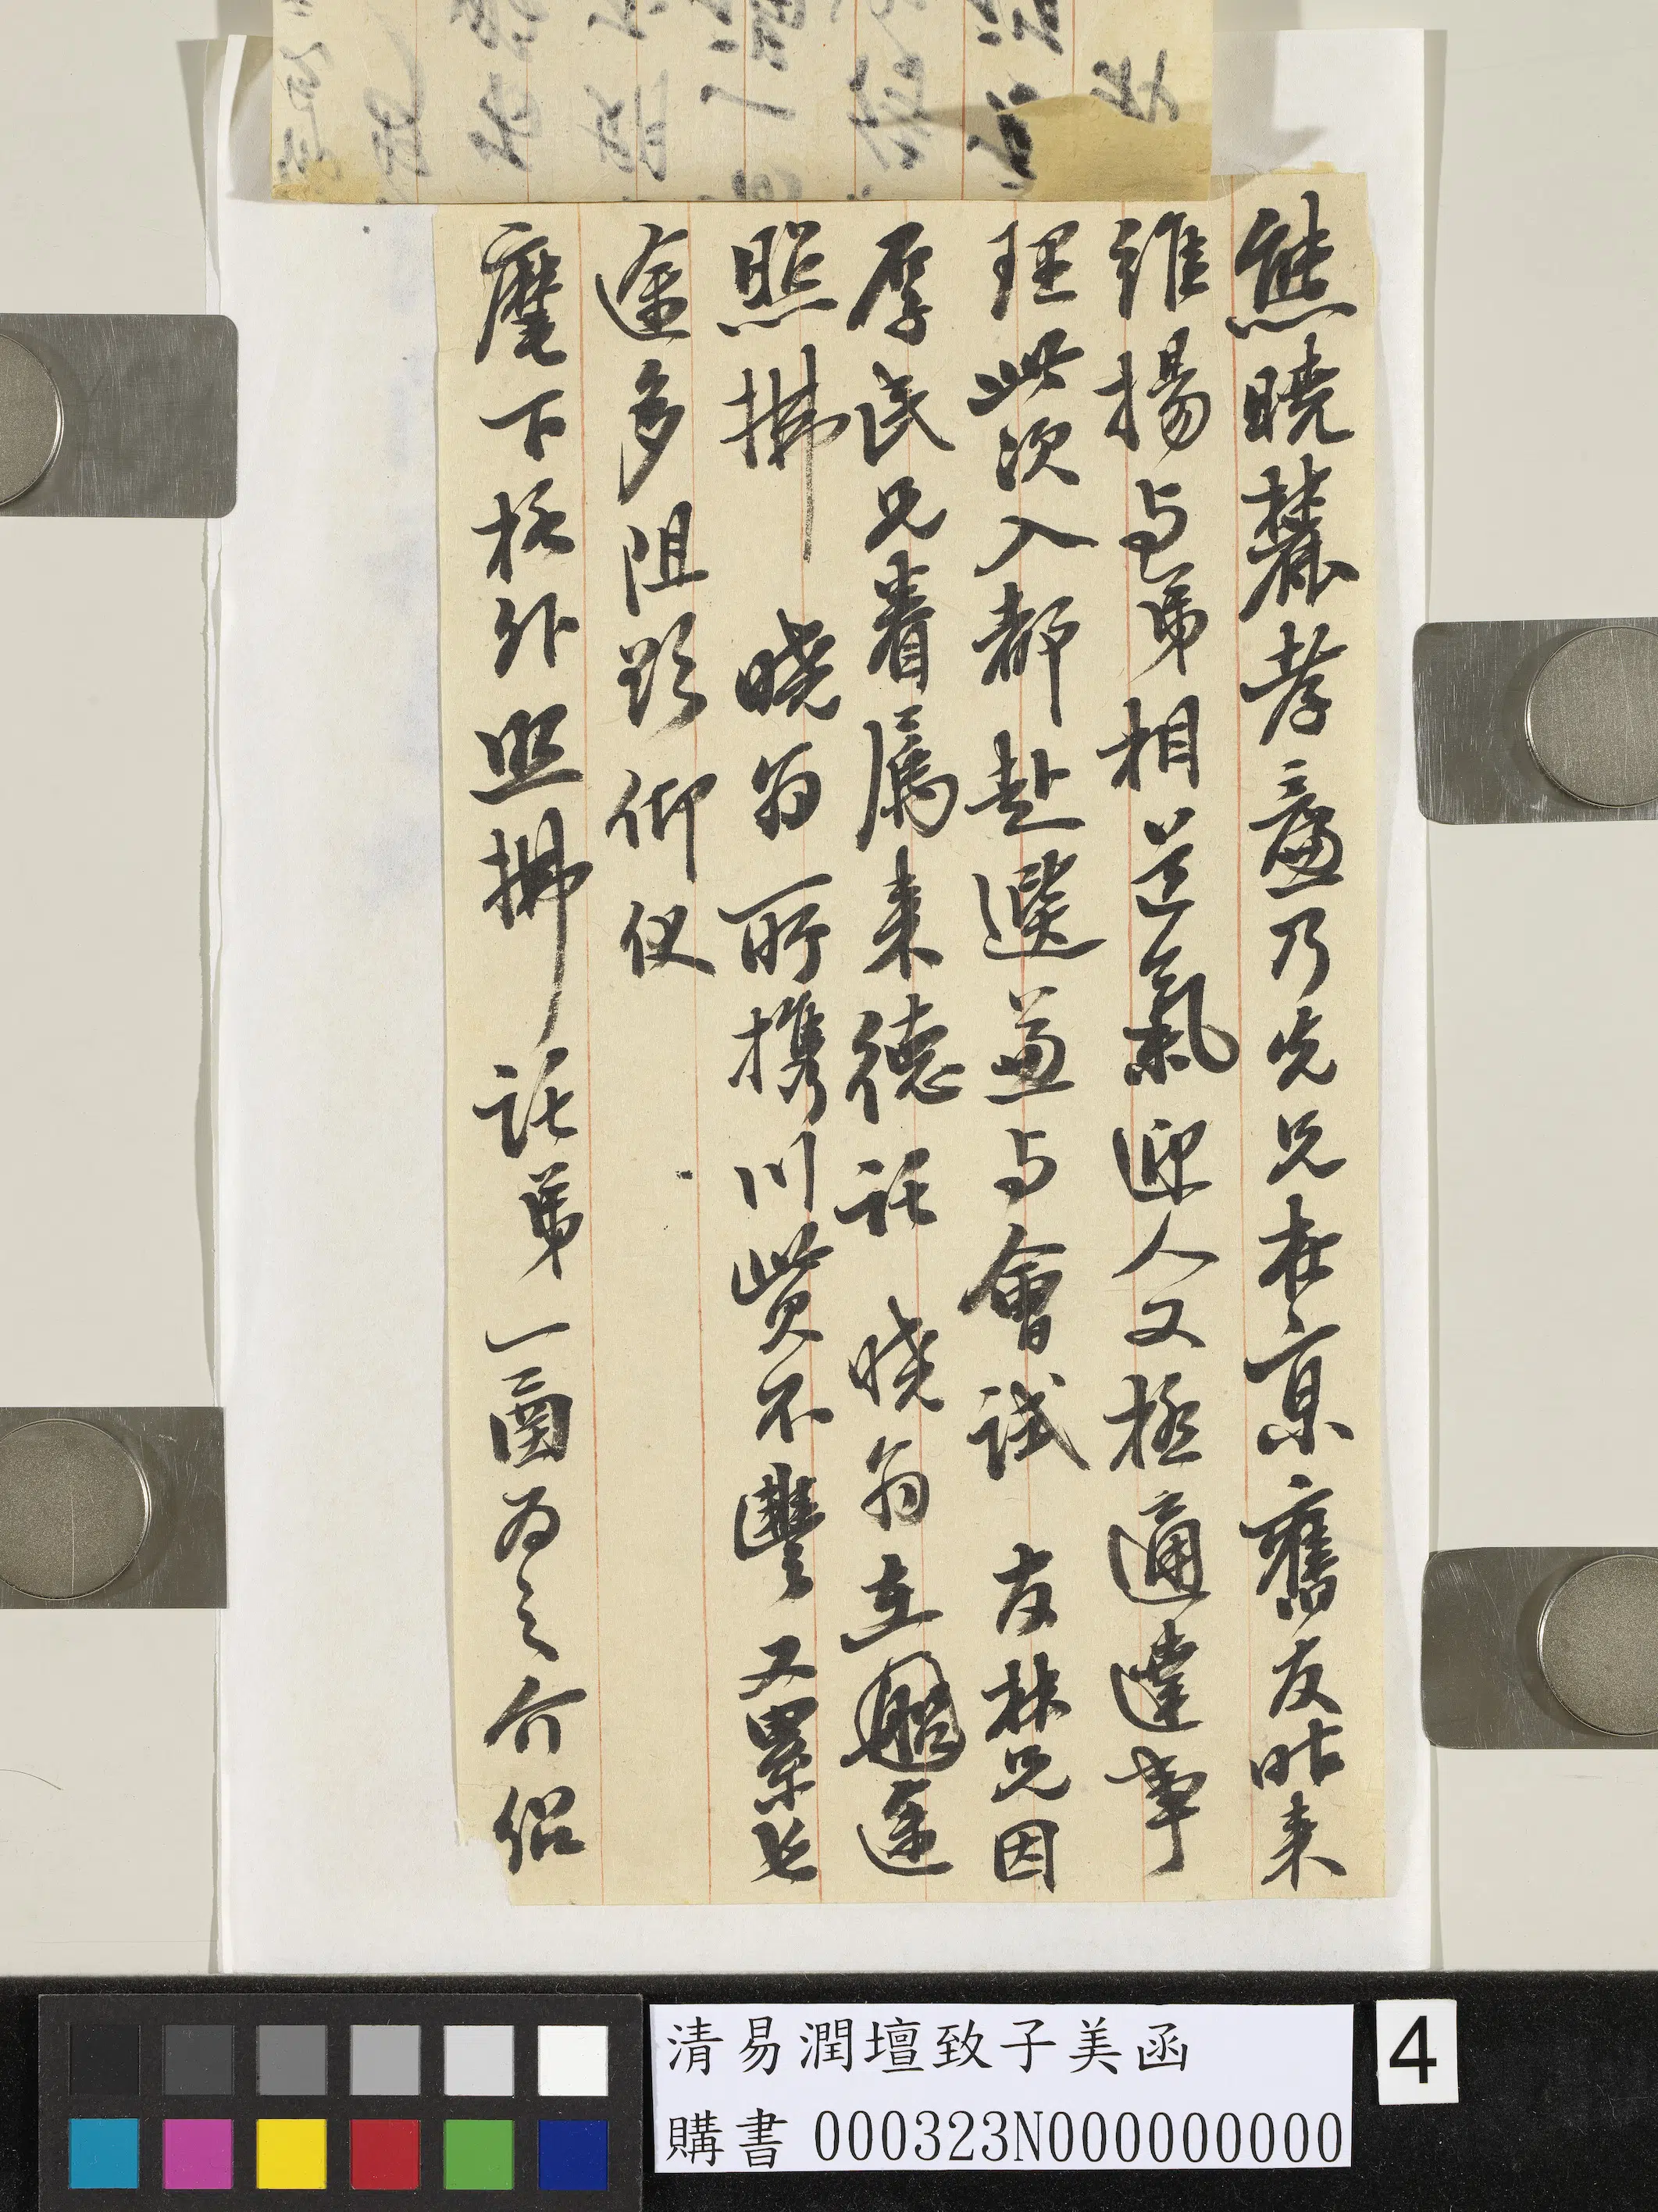 熊曉麓孝廉乃先兄在京舊友昨来
維揚与弟相氣迎人又極通達事
理此次入都赴選並与會試 友林兄因
厚民兄眷属来德託 曉翁在途
照拂 曉翁所携川貲不豐又累長
途多阻仰仗
麾下格外照拂託弟一函为之介紹
清易潤壇致子美函
購書 000323N000000000
4